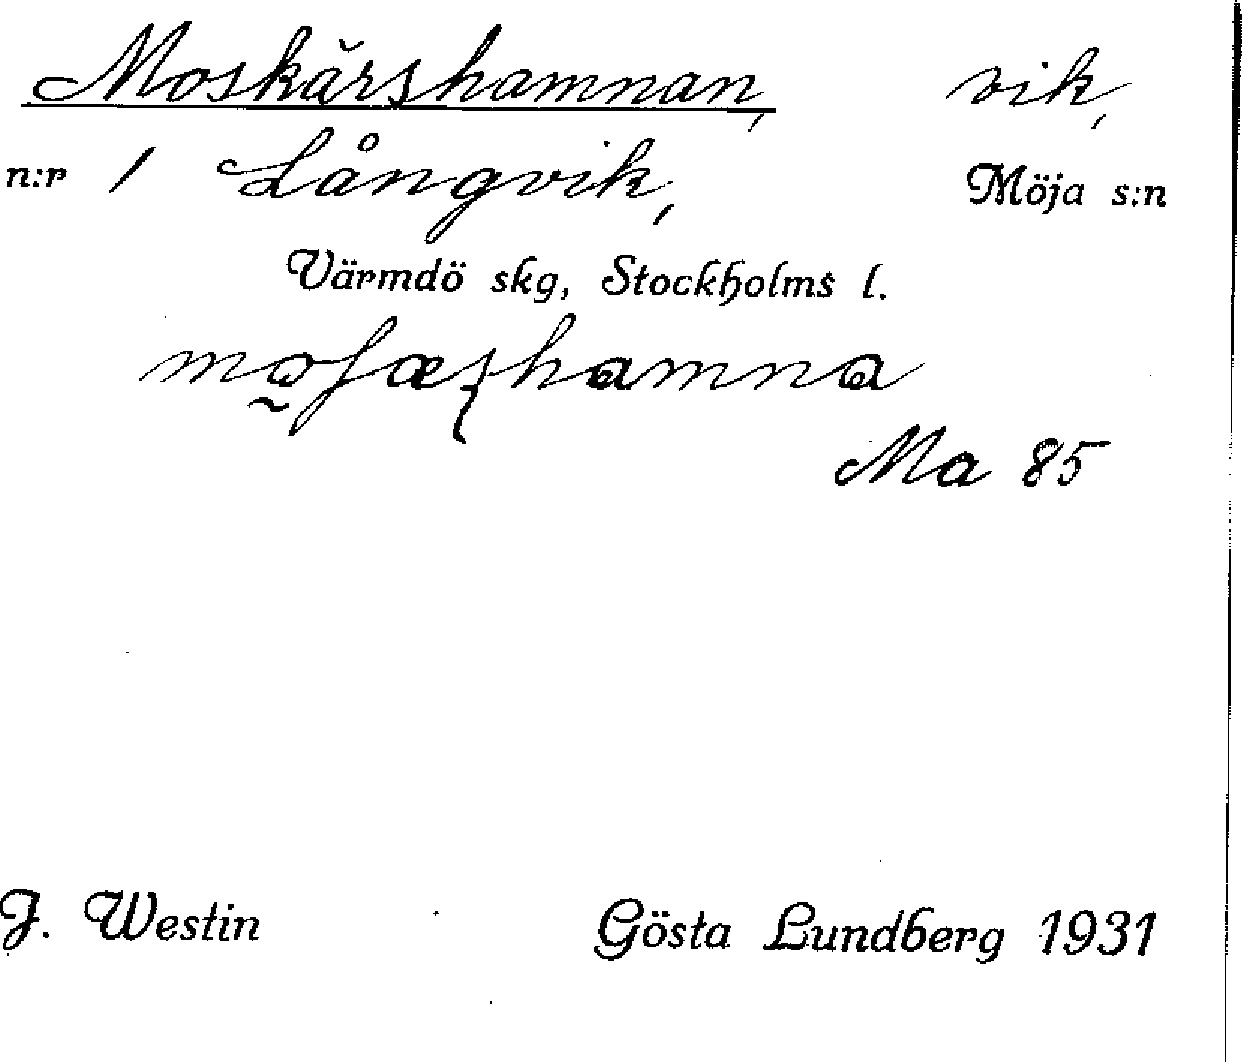 Moskärshamnan, vik,
n:r 1 Långvik, Möja s:n
Värmdö skg, Stockholms l.
Ma 85
J. Westin Gösta Lundberg 1931